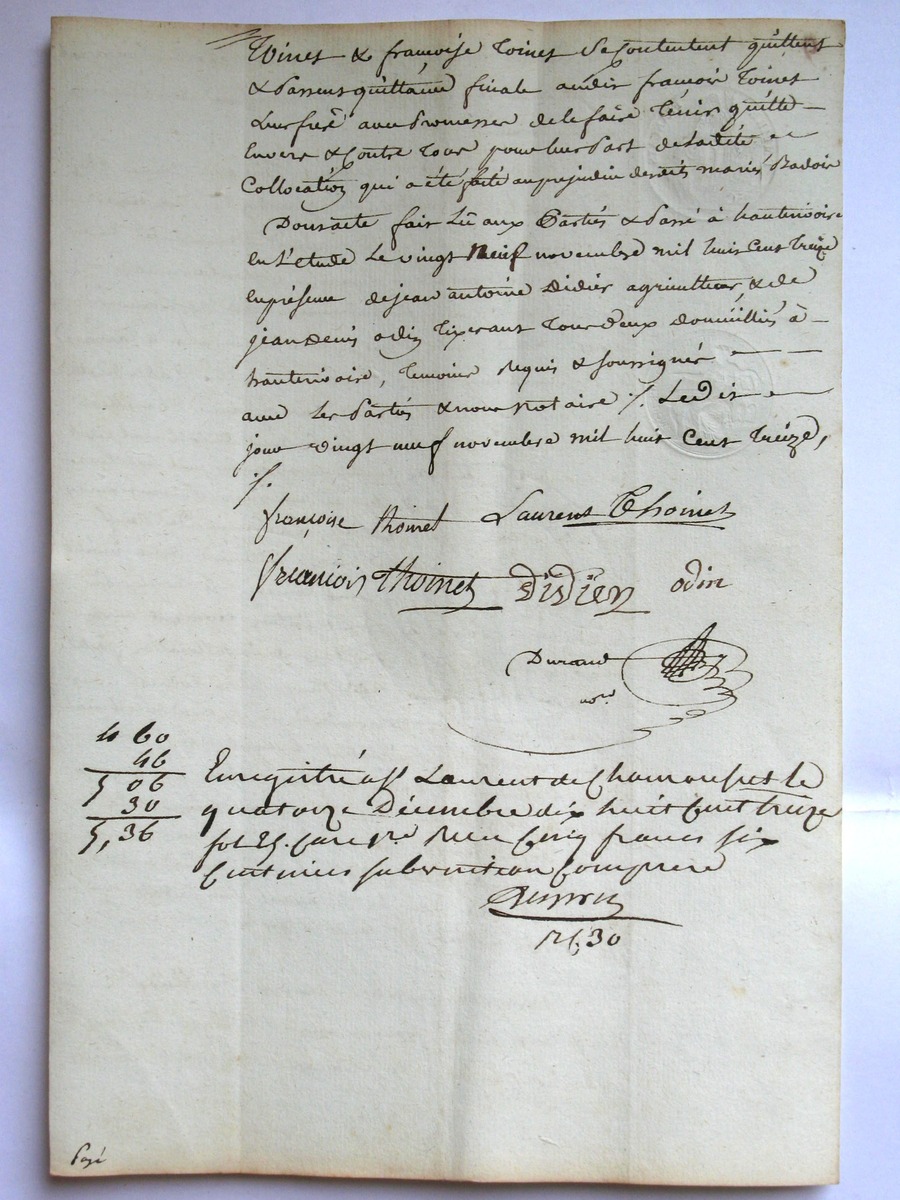 Toinet & francoise Toinet Se Contentent quittent
& Passent quittance finale audit francois Toinet
Leur frere avec Promesse de le faire Tenir quitte
Envers & Contre Tous pour leur Part de ladite
Collocation qui a été faite au prejudice desdits mariés Badoir
Dont acte fait Lû aux Parties & Passé à hauterivoire
En L'etude Le vingt Neuf novembre mil huit Cent treize
En présence de jean antoine Didier agriculteur & de
jean Denis odin Tixerant Tous Deux Domiciliés à
hauterivoire, Temoins Requis & soussignés
avec Les Parties & nous Notaire %. Ledit
jour vingt neuf novembre mil huit Cent treize,
%.
françoise thoinet Laurent Thoinet
françois thoinet didier odin
Durand
nore
4 60
46
5 06
30
5,36
Enregistré à St Laurent de Chamousset le
quatorze Décembre dix huit Cent treize
fol 25. Case 1re Reçu Cinq francs six
Centimes subvention Comprise
R f. 30
Payé